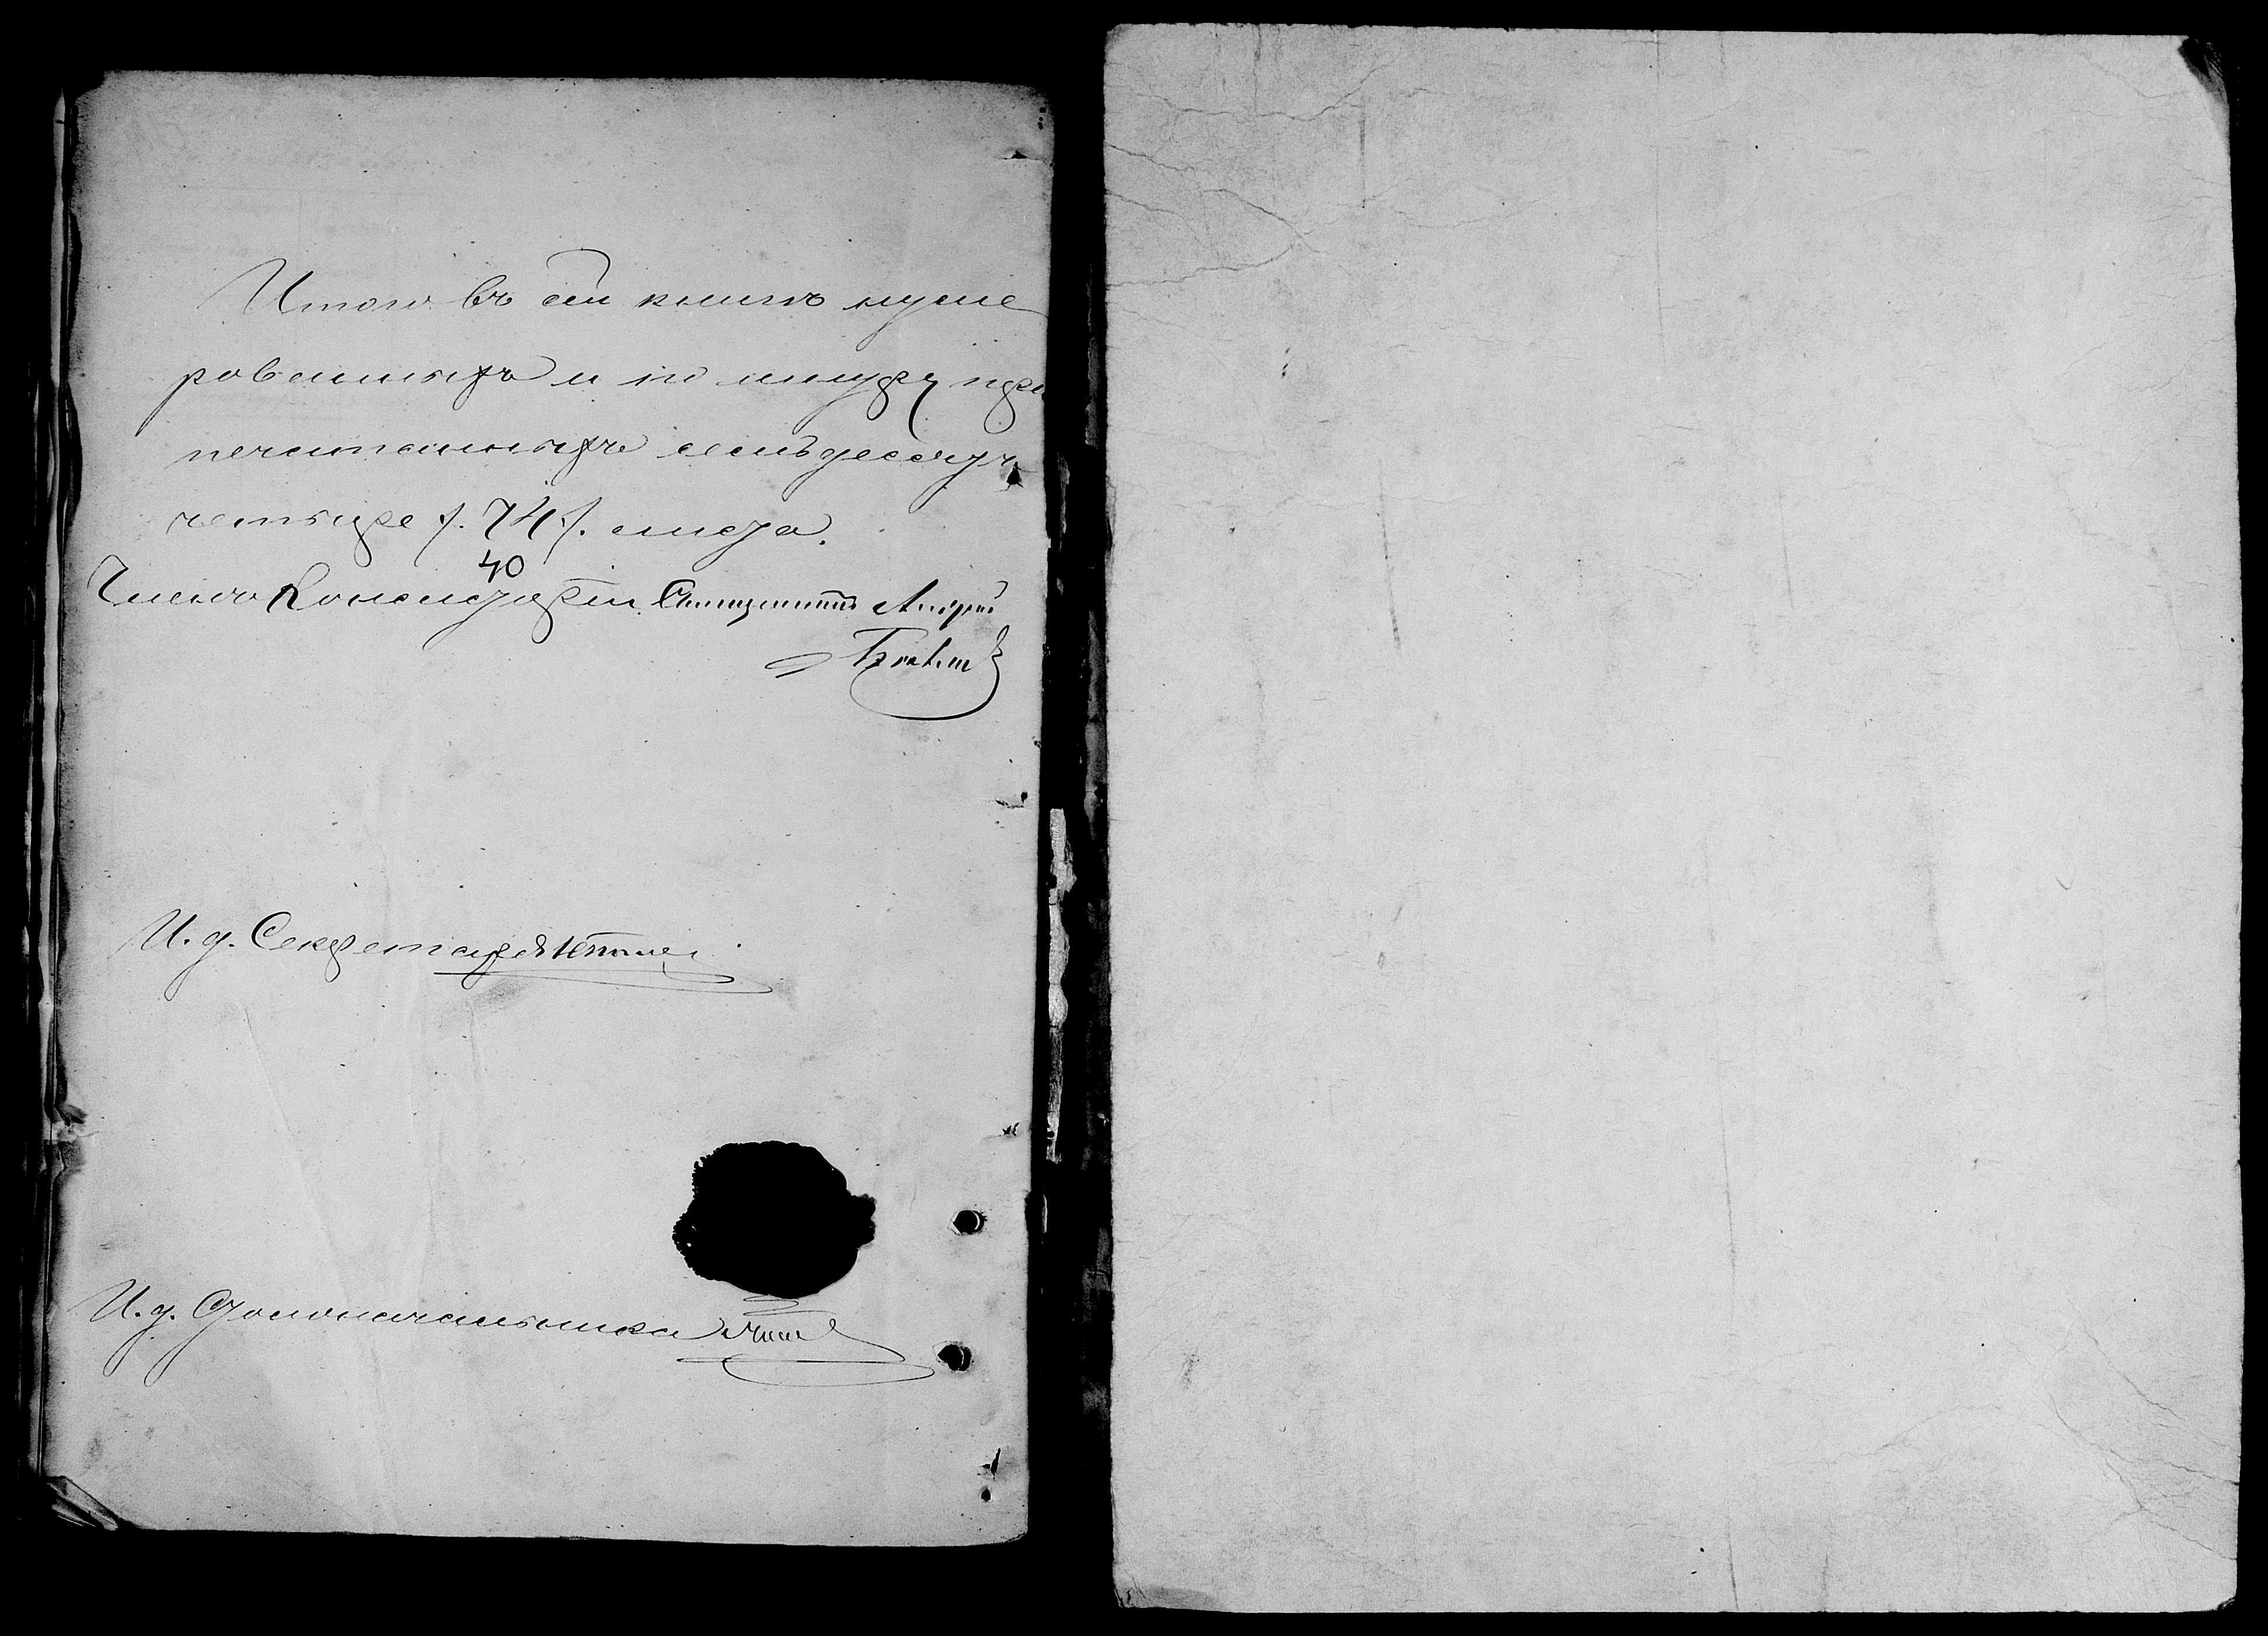 Итого въ сей книгѣ нуме
рованныхъ и по шнуру при
печатанныхъ семьдесятъ
четыре /. 74 /. листа.
40
Членъ Консисторіи Священникъ Андрей
И. д. Секретаря
И. д. Столоначальника